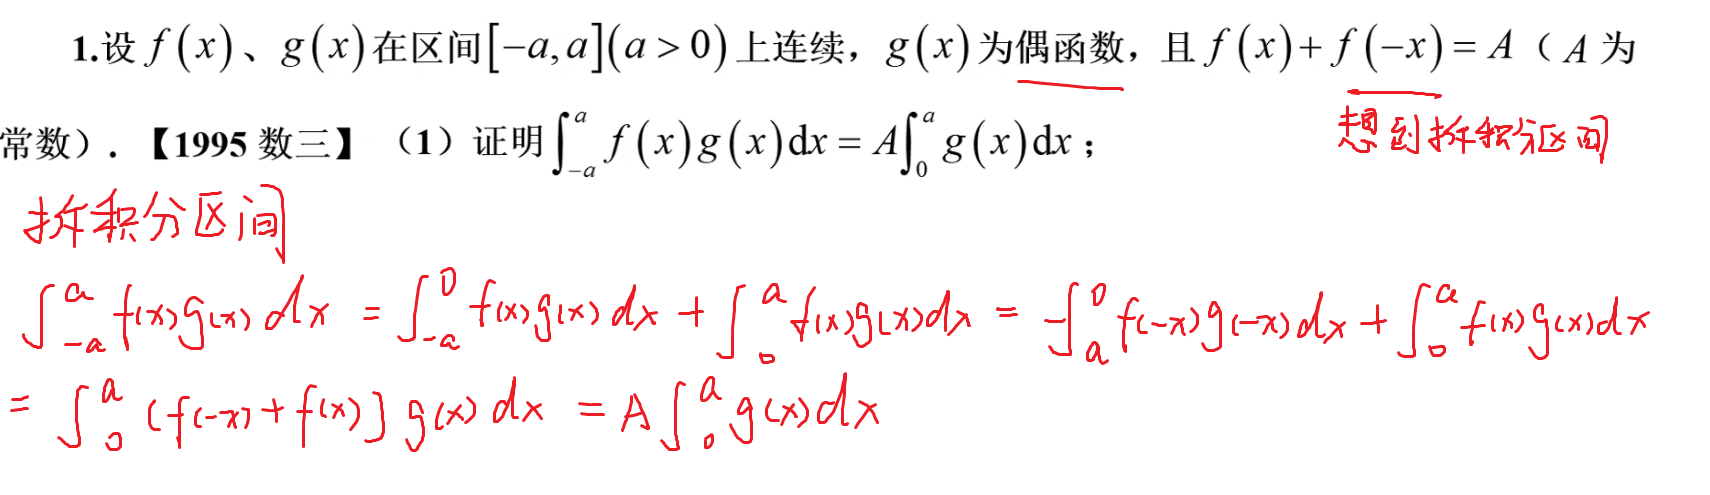 1.设 f(x)、g(x)在区间[−a,a](a>0)上连续，g(x)为偶函数，且 f(x)+f(−x)=A（A 为
想到拆积分区间
常数）.【1995 数三】（1）证明∫_{-a}^{a} f(x)g(x)dx = A∫_{0}^{a} g(x)dx；
拆积分区间
∫_{-a}^{a} f(x)g(x)dx = ∫_{-a}^{0} f(x)g(x)dx + ∫_{0}^{a} f(x)g(x)dx = -∫_{a}^{0} f(-x)g(-x)dx + ∫_{0}^{a} f(x)g(x)dx
= ∫_{0}^{a} [f(-x)+f(x)]g(x)dx = A∫_{0}^{a} g(x)dx